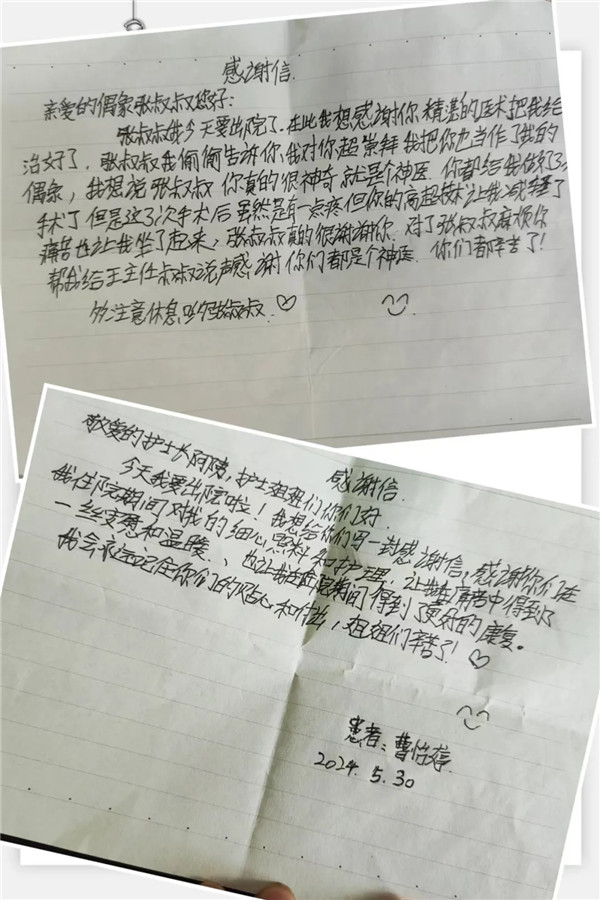 感谢信.
亲爱的偶象张叔叔您好:
张叔叔我今天要出院了.在此我想感谢你精湛的医术把我给
治好了,张叔叔我偷偷告诉你,我对你超崇拜我把你也当作了我的
偶象,我想说张叔叔你真的很神奇就是个神医.你都给我做了3次
手术了但是这3次手术后虽然是有一点疼但你的高超技术让我减轻了
痛苦也让我坐了起来,张叔叔真的很谢谢你.对了张叔叔麻烦你
帮我给王主任叔叔说声感谢你们都是个神医.你们都辛苦了!
多注意休息叔叔.
感谢信.
敬爱的护士长阿姨,护士姐姐们你们好.
今天我要出院啦!我想给你们写一封感谢信,感谢你们在
我住院期间对我的细心照料和护理,让我在痛苦中得到了
一丝安慰和温暖、也让我在住院期间得到了更好的康复。
我会永远记住你们的贴心和付出,姐姐们辛苦了!
患者:曹怡婷.
2024.5.30